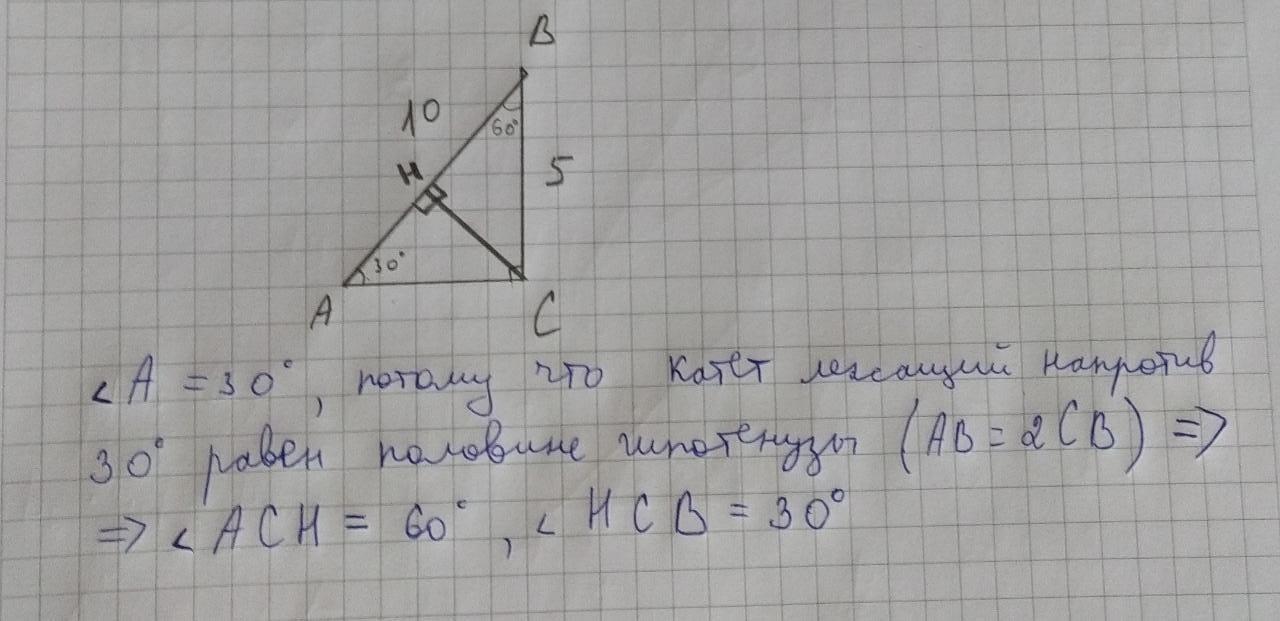 B
10
60°
H
5
30°
A
C
∠A = 30°, потому что катет лежащий напротив
30° равен половине гипотенузы (AB = 2CB) =>
=> ∠ACH = 60°, ∠HCB = 30°